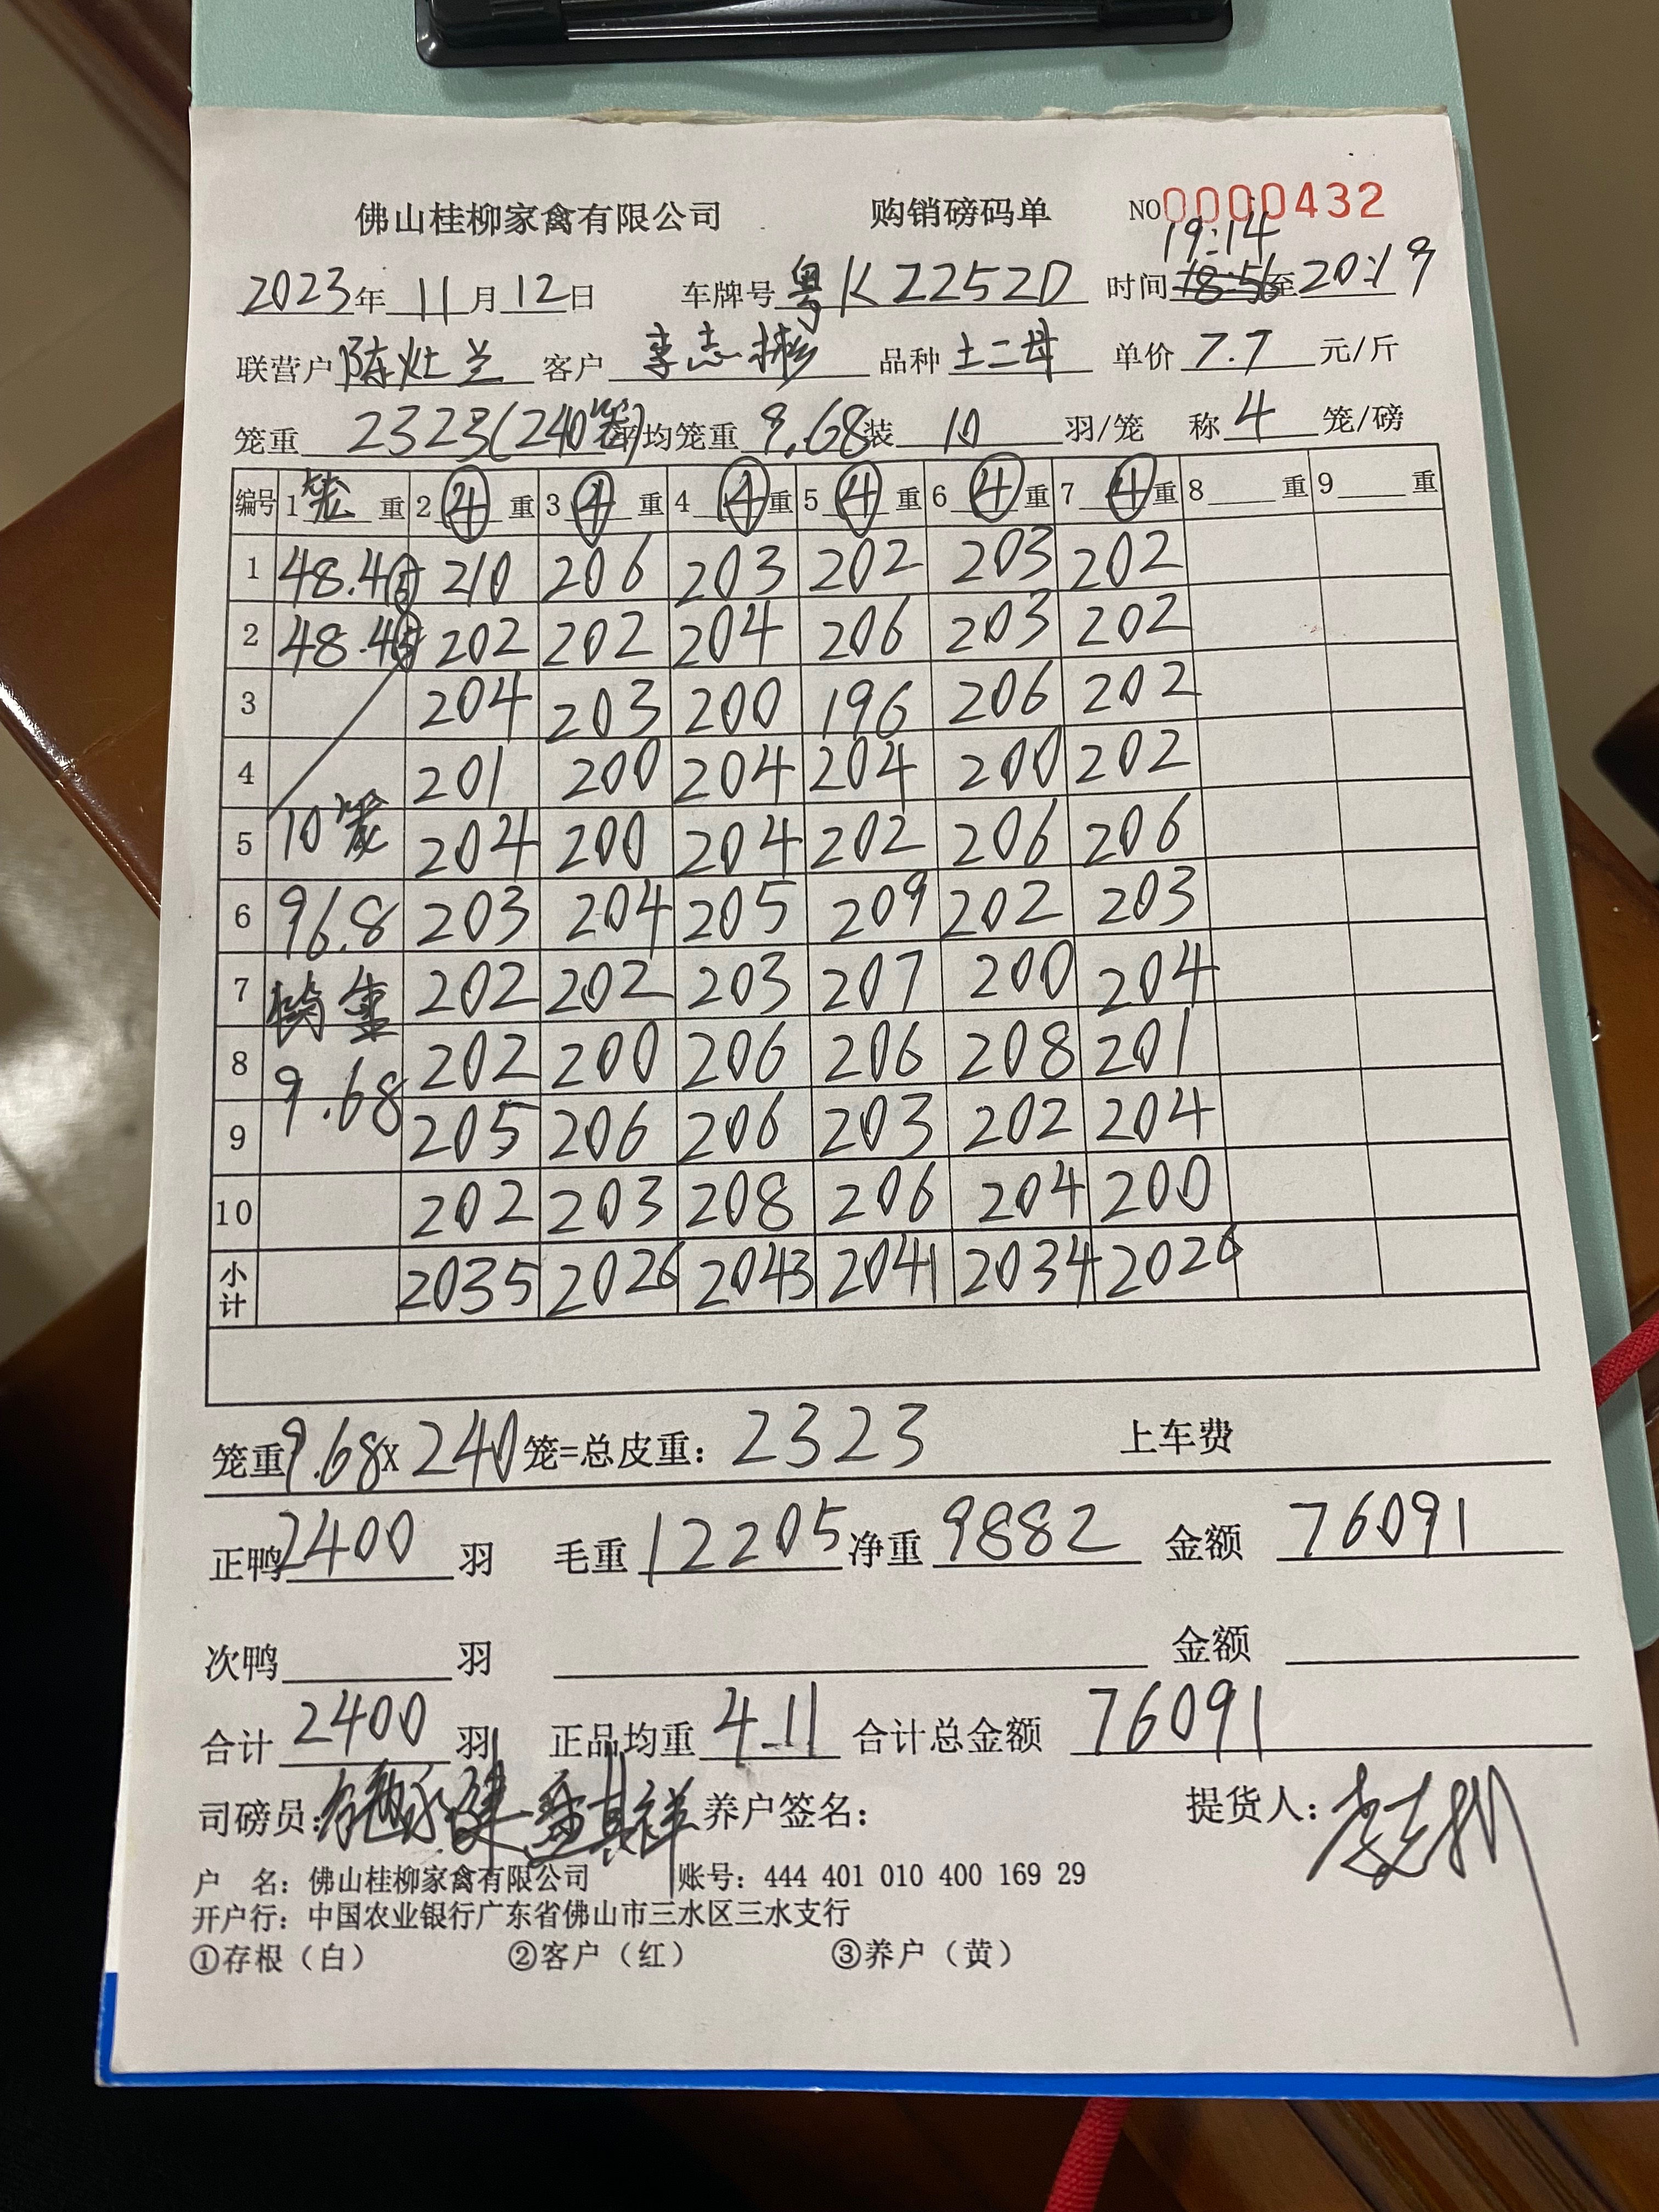 佛山桂柳家禽有限公司 购销磅码单 NO0000432
19:14
2023年 11月 12日 车牌号 粤K2252D 时间 18:56 至 20:19
联营户 陈灶兰 客户 李志彬 品种 土二母 单价 7.7 元/斤
笼重 2323(240笼) 平均笼重 9.68 装 10 羽/笼 称 4 笼/磅
编号 1 笼 重 2 4 重 3 4 重 4 4 重 5 4 重 6 4 重 7 4 重 8 重 9 重
1 48.4⑤ 210 206 203 202 203 202
2 48.4⑤ 202 202 204 206 203 202
3 204 203 200 196 206 202
4 201 200 204 204 200 202
5 10笼 204 200 204 202 206 206
6 96.8 203 204 205 209 202 203
7 202 202 203 207 200 204
8 9.68 202 200 206 206 208 201
9 205 206 206 203 202 204
10 202 203 208 206 204 200
小计 2035 2026 2043 2041 2034 2026
笼重 9.68 x 240 笼=总皮重: 2323 上车费
正鸭 2400 羽 毛重 12205 净重 9882 金额 76091
次鸭 羽 金额
合计 2400 羽 正品均重 4.11 合计总金额 76091
司磅员: 养户签名: 提货人:
户 名: 佛山桂柳家禽有限公司 账号: 444 401 010 400 169 29
开户行: 中国农业银行广东省佛山市三水区三水支行
①存根（白） ②客户（红） ③养户（黄）